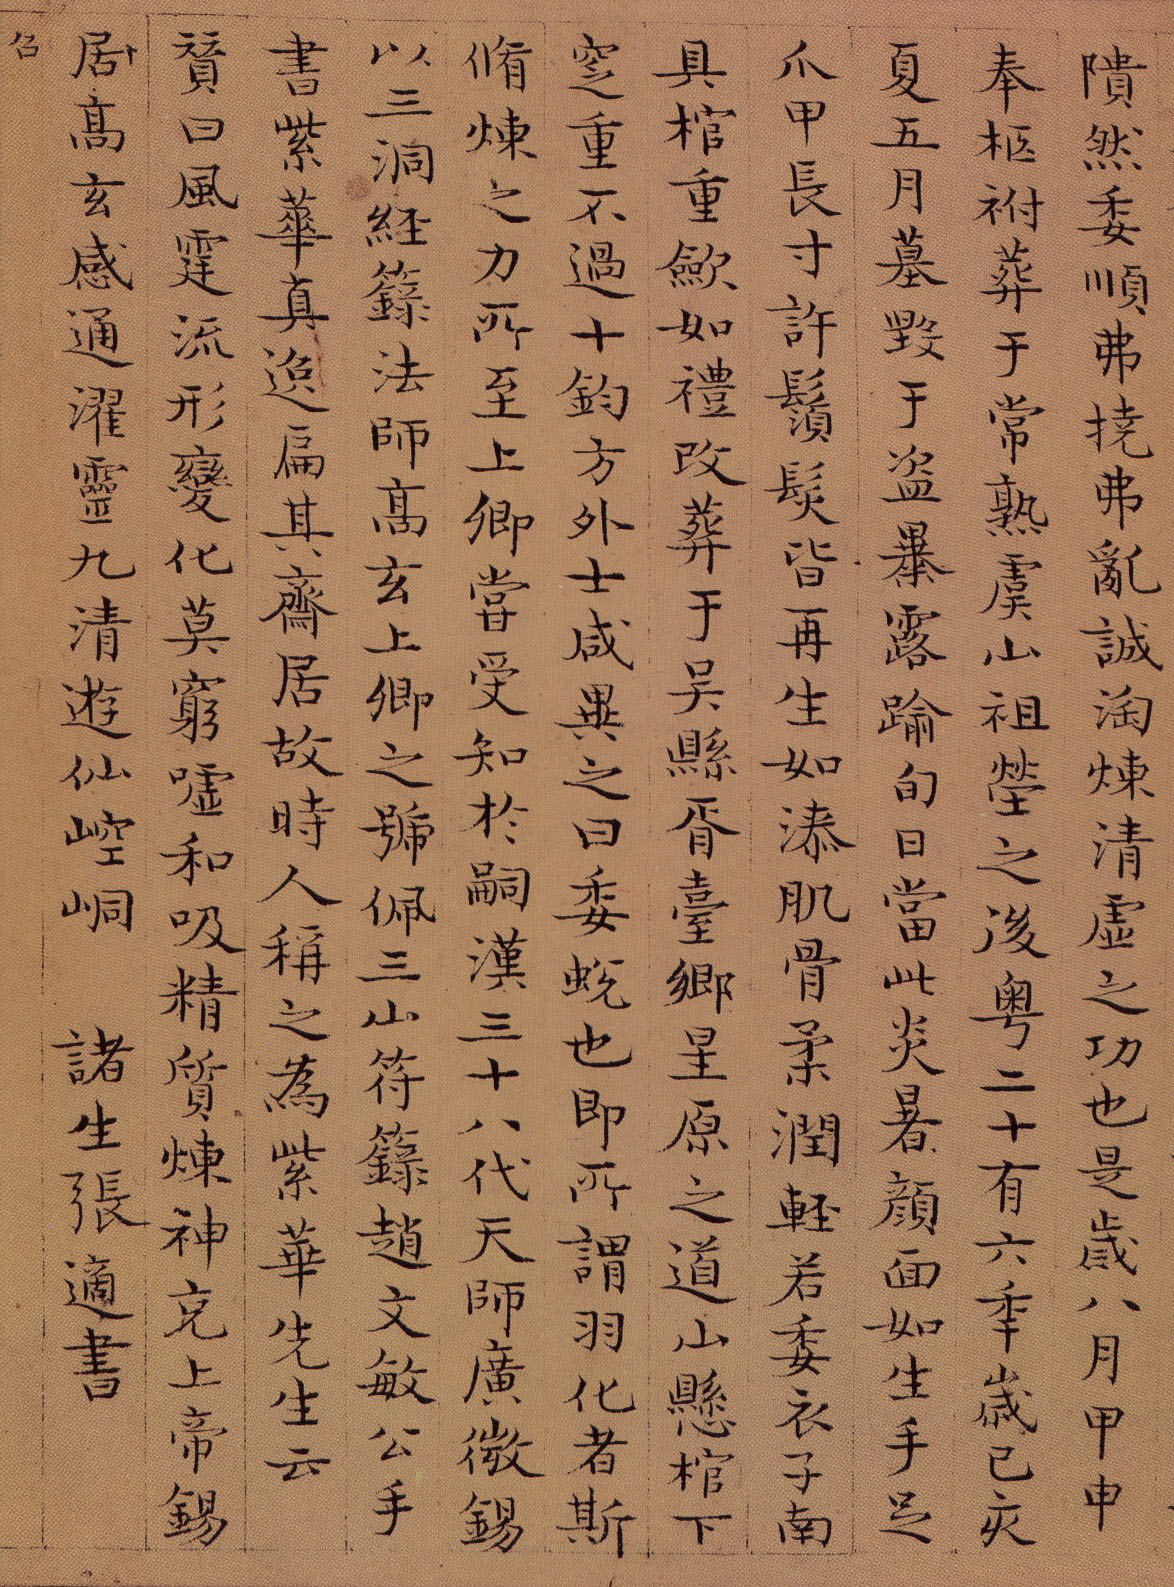 隤然委順弗撓弗亂誠淘煉清虛之功也是歲八月甲申
奉柩祔葬于常熟虞山祖塋之後粵二十有六年歲己亥
夏五月墓毀于盜暴露踰旬日當此炎暑顏面如生手足
爪甲長寸許鬚髮皆再生如漆肌骨柔潤軽若委衣子南
具棺重斂如禮改葬于吳縣胥臺鄉星原之道山懸棺下
窆重不過十鈞方外士咸異之曰委蛻也即所謂羽化者斯
脩煉之力所至上卿嘗受知於嗣漢三十八代天師廣微錫
以三洞経籙法師髙玄上卿之號佩三山符籙趙文敏公手
書紫華真逸扁其齋居故時人稱之為紫華先生云
贊曰風霆流形變化莫窮噓和吸精質煉神充上帝錫
居髙玄感通濯靈九清遊仙崆峒　諸生張適書